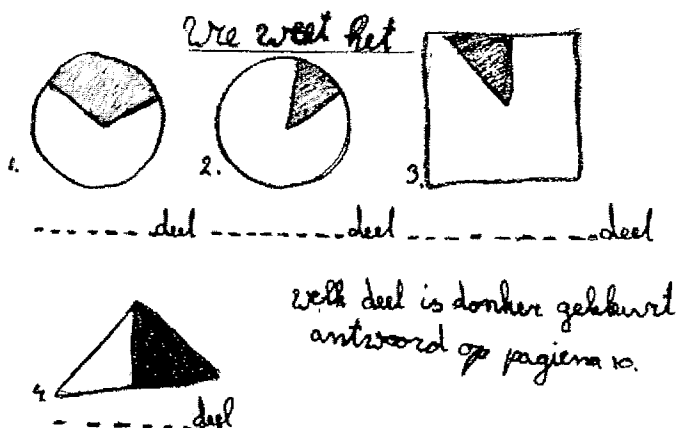 Wie weet het
1.
2.
3.
------deel -------deel -------deel
welk deel is donker gekleurt
antwoord op pagiena 10.
4.
------deel